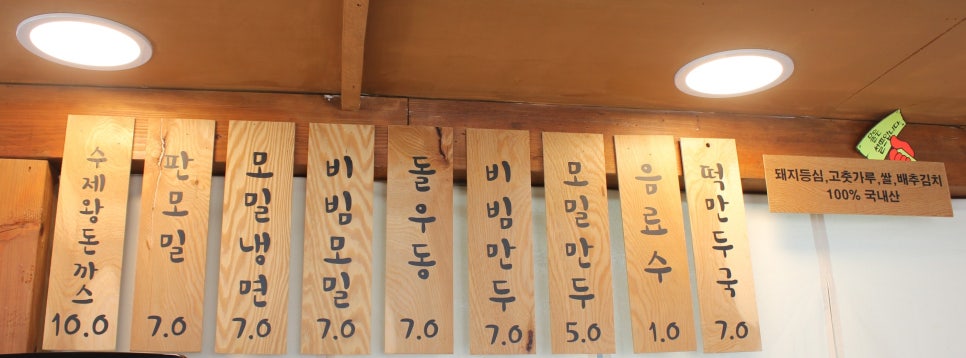 수제왕돈까스
10.0
판모밀
7.0
모밀냉면
7.0
비빔모밀
7.0
돌우동
7.0
비빔만두
7.0
모밀만두
5.0
음료수
1.0
떡만두국
7.0
돼지등심,고춧가루,쌀,배추김치
100% 국내산
물은
셀프입니다